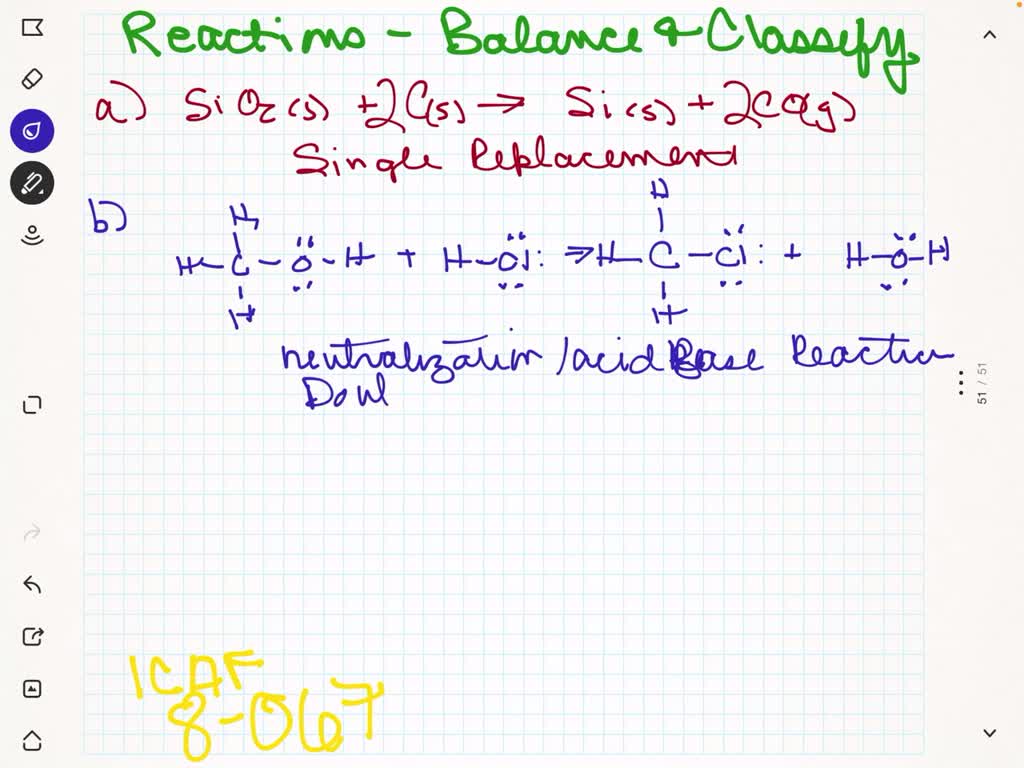 Reactions - Balance & Classify
a) SiO2(s) + 2C(s) → Si(s) + 2CO(g)
Single Replacement
H
b)
H
H-C-Ö-H + H-Cl: ⇒ H-C-Cl: + H-Ö-H
H
H
neutralization / acid Base Reaction
Doul
51 / 51
ICAF
8-067